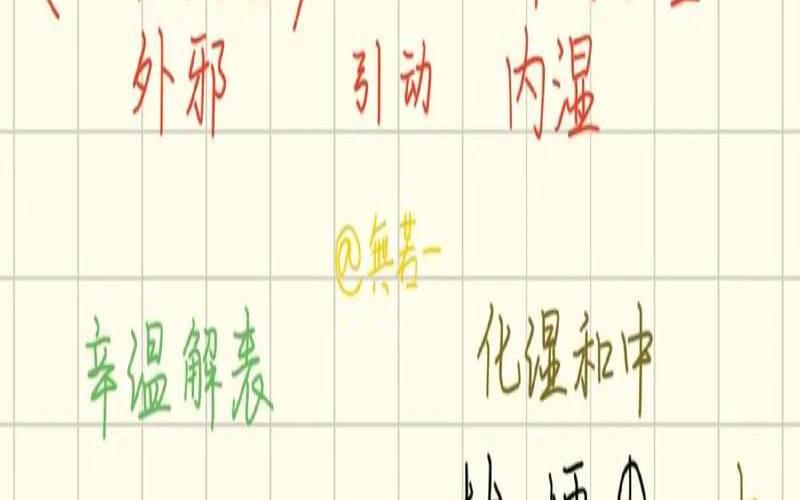 外邪 引动 内湿
@無若一
辛温解表 化湿和中